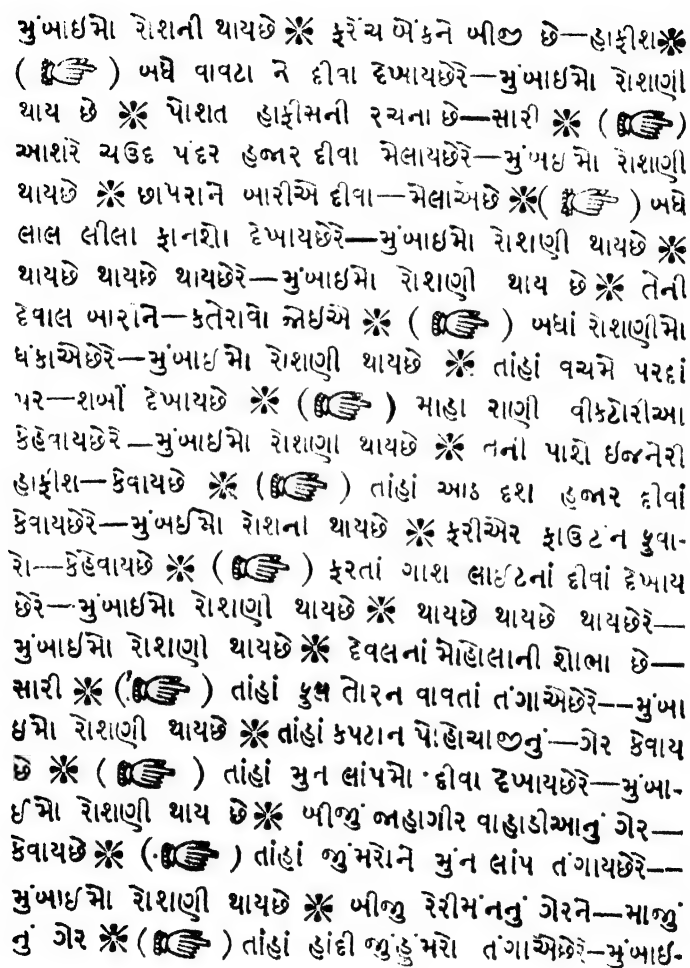 મુંબાઇમો રોશની થાયછે ❊ ફરેંચ બેંકને બીજી છે—હાફીશ❊
( ☞ ) બધે વાવટા ને દીવા દેખાયછેરે—મુંબાઇમો રોશણી
થાય છે ❊ પોશત હાફીસની રચના છે—સારી ❊ ( ☞ )
આશરે ચઉદ પંદર હજાર દીવા મેલાયછેરે—મુંબઇમો રોશણી
થાયછે ❊ છાપરાને બારીએ દીવા—મેલાએછે ❊( ☞ ) બધે
લાલ લીલા ફાનશો દેખાયછેરે—મુંબાઇમો રોશણી થાયછે ❊
થાયછે થાયછે થાયછેરે—મુંબાઇમો રોશણી થાય છે ❊ તેની
દેવાલ બારીને—કતેરાવો જોઇએ ❊ ( ☞ ) બધાં રોશણીમો
ધંકાએછેરે—મુંબાઇમો રોશણી થાયછે ❊ તાંહાં વચમે પરદાં
પર—શબીં દેખાયછે ❊ ( ☞ ) માહા રાણી વીકટોરીઆ
કેહેવાયછેરે—મુંબાઇમો રોશણી થાયછે ❊ તની પાશે ઇજનેરી
હાફીશ—કેવાયછે ❊ ( ☞ ) તાંહાં આઠ દશ હજાર દીવાં
કેવાયછેરે—મુંબઈમો રોશના થાયછે ❊ ફરીએર ફાઉટંન ફુવા-
રો—કેહેવાયછે ❊ ( ☞ ) ફરતાં ગાશ લાઈટનાં દીવાં દેખાય
છેરે—મુંબાઈમો રોશણી થાયછે ❊ થાયછે થાયછે થાયછેરે—
મુંબાઈમો રોશણી થાયછે ❊ દેવલનાં મોહોલાની શોભા છે—
સારી ❊ ( ☞ ) તાંહાં ફુલ તોરન વાવતાં તંગાએછેરે--મુંબા
ઇમો રોશણી થાયછે ❊ તાંહાં કપટાન પોહોચાજીનું—ગેર કેવાય
છે ❊ ( ☞ ) તાંહાં મુન લાંપમો દીવા દેખાયછેરે—મુંબા-
ઈમો રોશણી થાય છે ❊ બીજું જાહાગીર વાહાડીઆનું ગેર—
કેવાયછે ❊ ( ☞ ) તાંહાં જુંમરોને મુંન લાંપ તંગાયછેરે--
મુંબાઈમો રોશણી થાયછે ❊ બીજુ રેરીમંનનું ગેરને—માજું
નું ગેર ❊ ( ☞ ) તાંહાં હાંદી જુંડુંમરો તંગાએછેરે—મુંબાઈ-